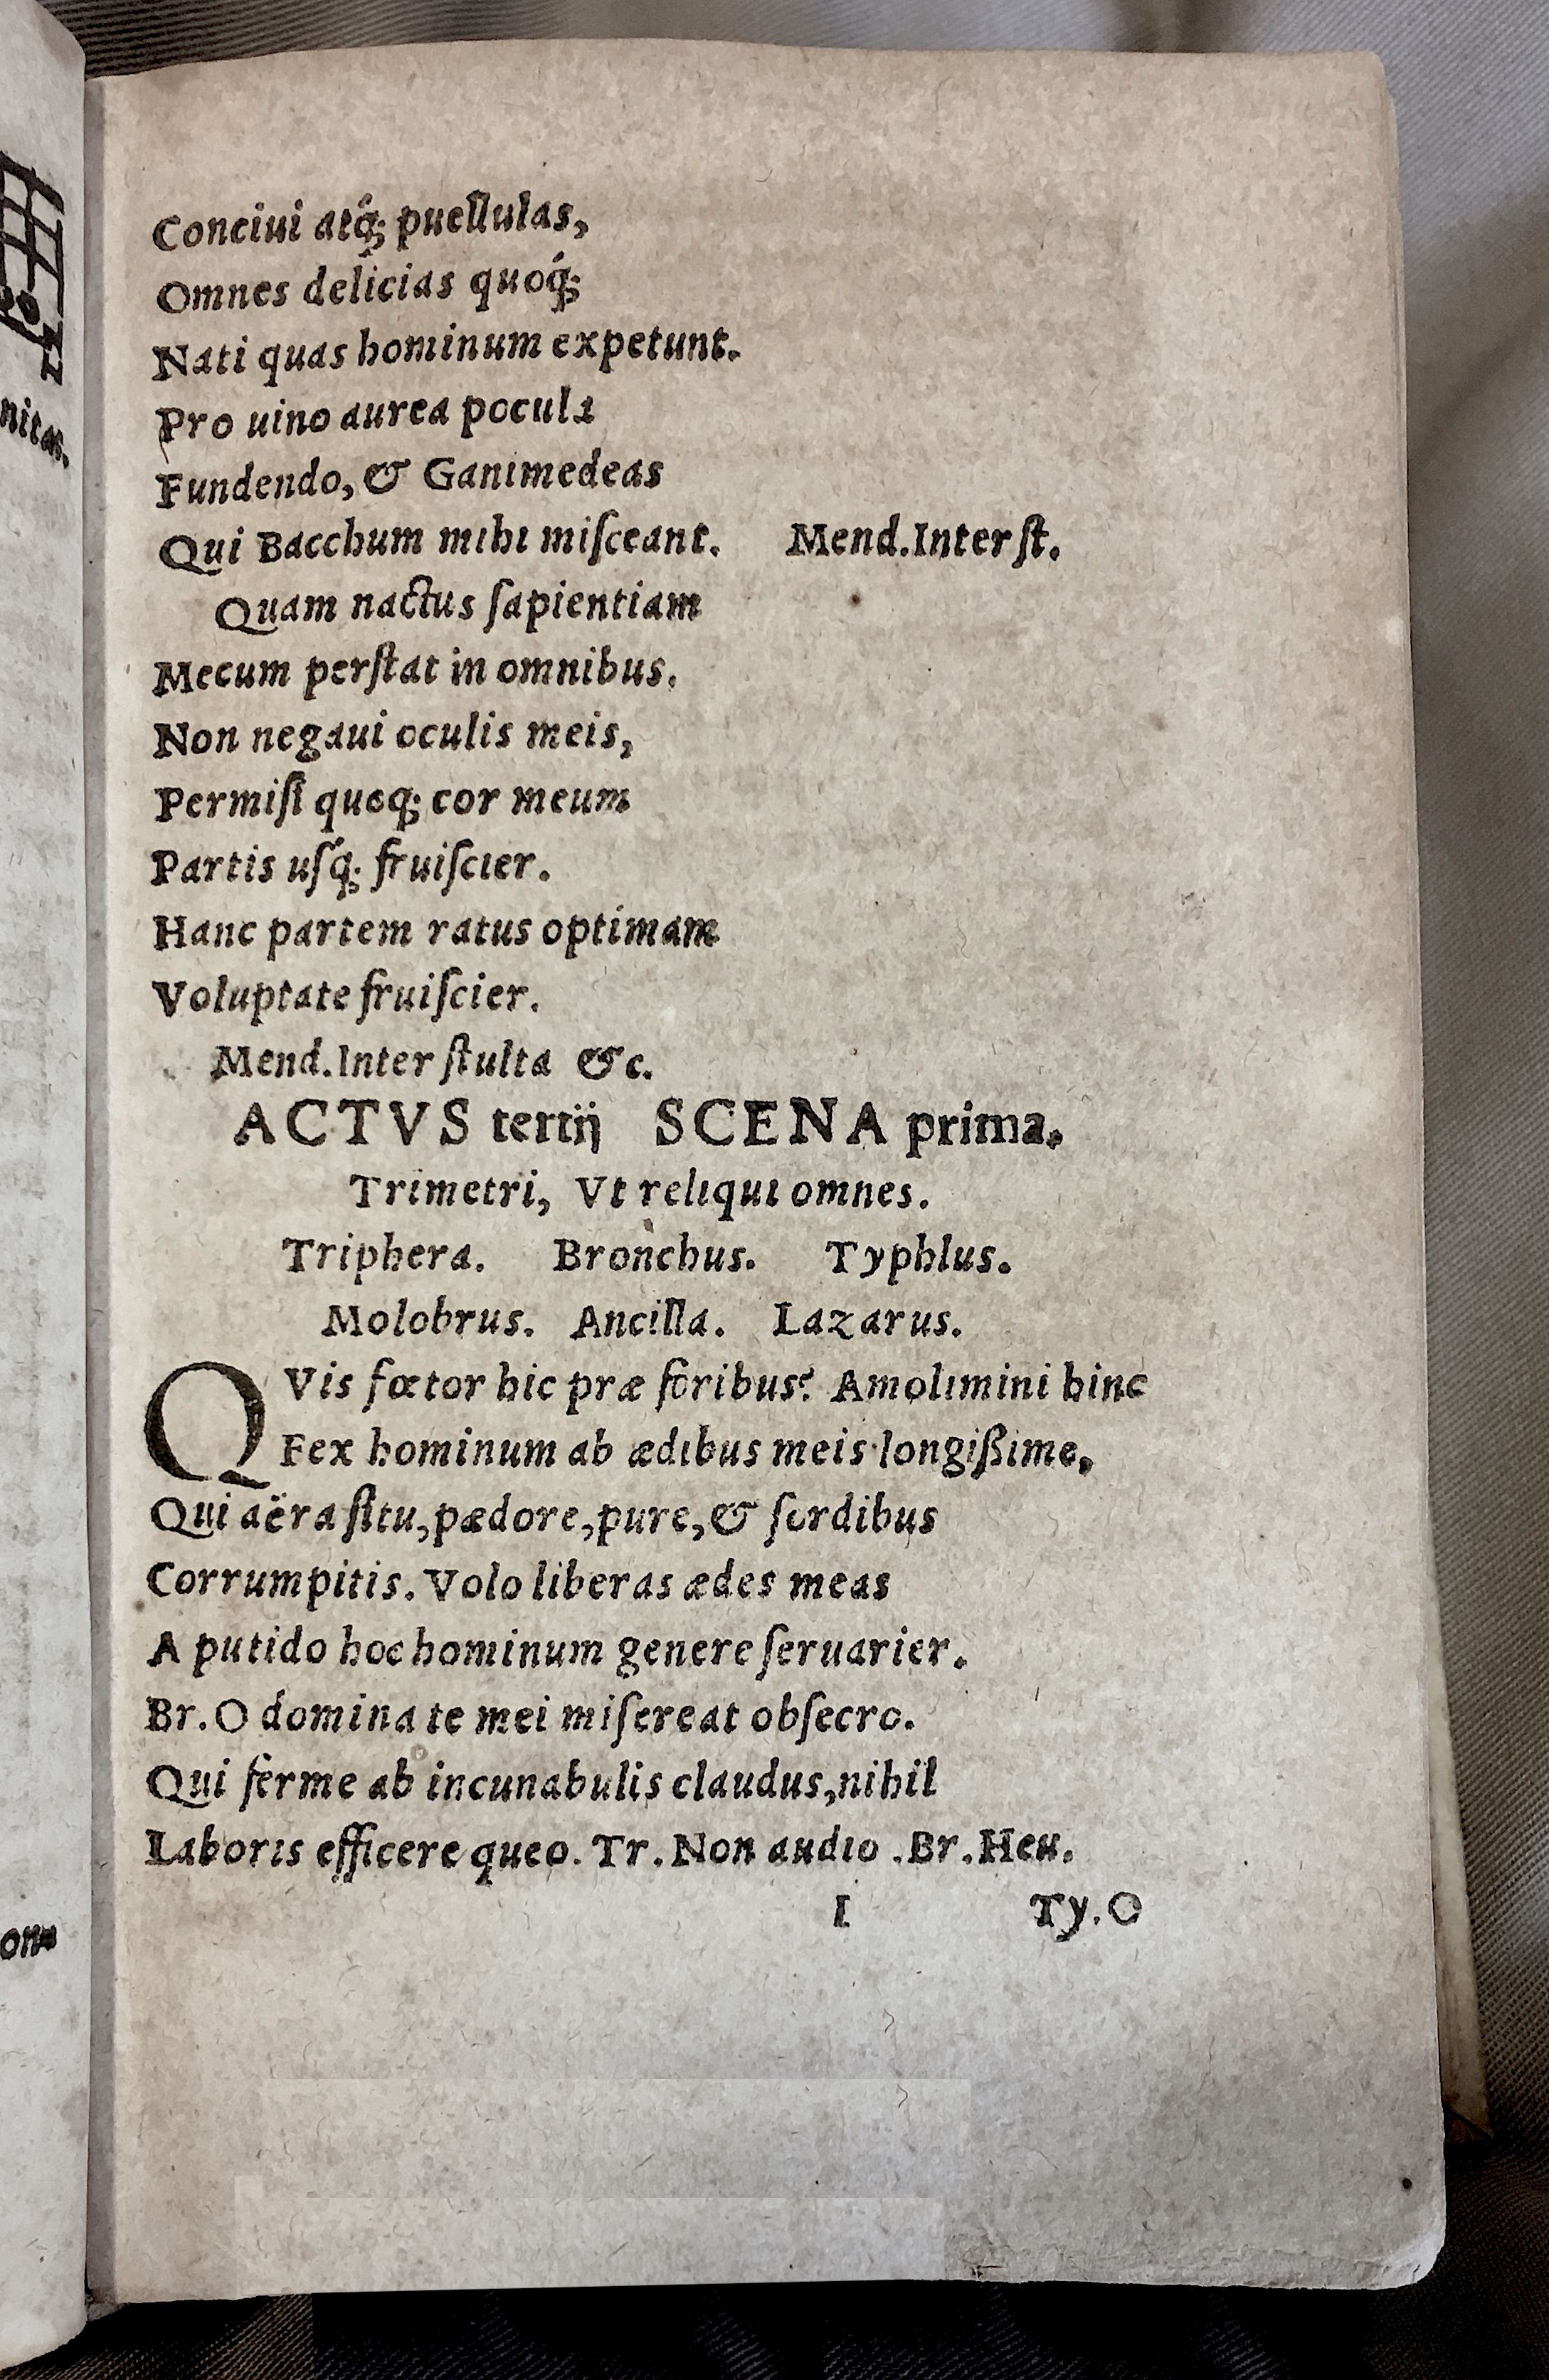 nitas.
on⸗
Conciui atq́; puellulas,
Omnes delicias quoq́;
Nati quas hominum expetunt.
Pro uino aurea pocula
Fundendo, & Ganimedeas
Qui Bacchum mihi miſceant. Mend. Inter ſt.
Quam nactus ſapientiam
Mecum perſtat in omnibus.
Non negaui oculis meis,
Permiſi quoq; cor meum
Partis uſq́; fruiſcier.
Hanc partem ratus optimam
Voluptate fruiſcier.
Mend. Inter ſtulta &c.
ACTVS tertij SCENA prima.
Trimetri, Vt reliqui omnes.
Triphera. Bronchus. Typhlus.
Molobrus. Ancilla. Lazarus.
QVis fœtor hic præ foribus? Amolimini hinc
Fex hominum ab ædibus meis longißime,
Qui aëra ſitu, pædore, pure, & ſordibus
Corrumpitis. Volo liberas ædes meas
A putido hoc hominum genere ſeruarier.
Br. O domina te mei miſereat obſecro.
Qui ferme ab incunabulis claudus, nihil
Laboris efficere queo. Tr. Non audio. Br. Heu.
I Ty. O